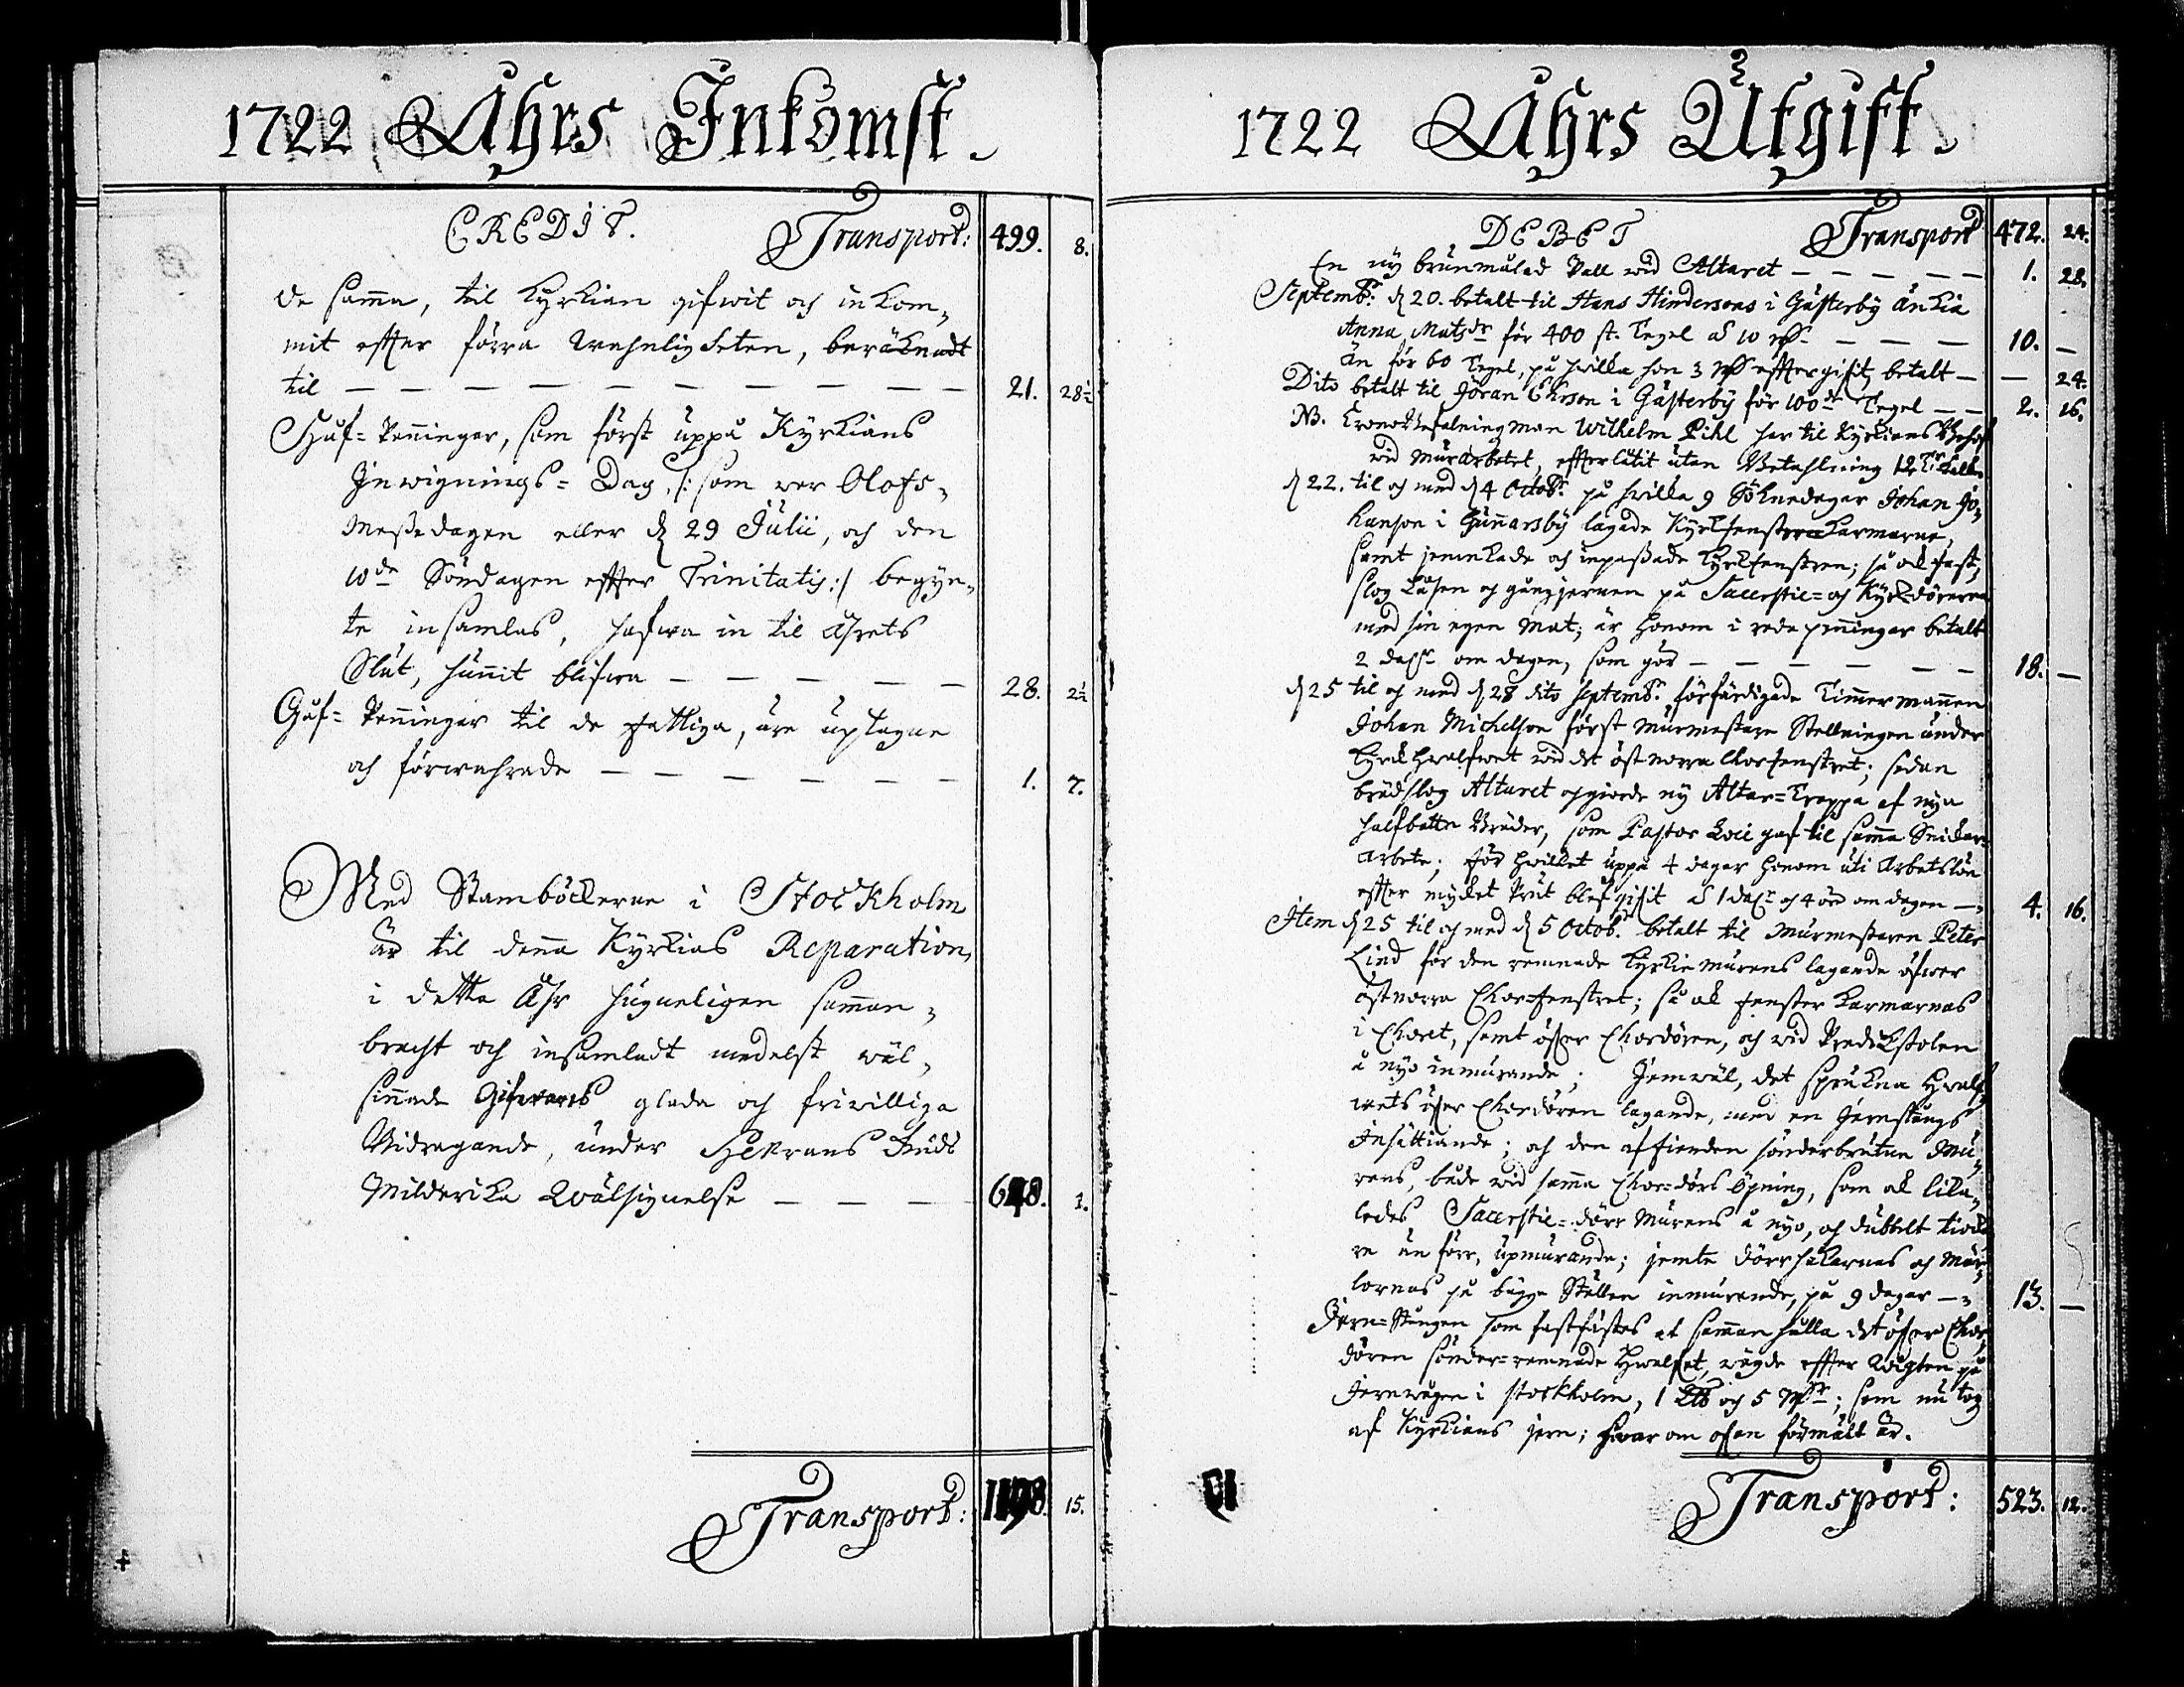 1722 Åhrs Inkomst.
CREDIT. Transport: 499. 8.
de samma, til Kyrkian gifwit och inkom,
mit effter förra wahnligheten, beräknadt
til — — — — — — — — — — 21. 28½
Håf-Penningar, som först uppå Kyrkians
Inwignings-Dag, /: som war Olofs,
Messedagen eller d 29 Julii, och den
10de Söndagen effter Trinitatis :/ begyn,
te insamlas, hafwa in til åhrets
Slut, hunnit blifwa — — — — — 28. 2½
Gåf-Penningar til de fattiga, äre uptagne
och förwahrade — — — — — — 1. 7.
Med Stamböckerne i Stockholm
är til denna Kyrkias Reparation,
i detta Åhr hugneligen samman,
bracht och insamladt medelst wäl,
sinnade Gifwares glada och friwilliga
Bidragande, under HERrans Guds
Milderika Wälsignelse — — — 648. 1.
Transport: 1198. 15.
1722 Åhrs Utgift.
DEBET Transport 472. 24.
En ny brunmålad Pall wid Altaret — — — — — 1. 28.
Septembr: d 20. betalt til Hans Hindersons i Gästerby änkia
Anna Matsdr för 400 st. Tegel — — — 10. —
än för 60 Tegel, på hwilka hon 3 effter gifit, betalt — — 24.
Dito betalt til Jöran Ehrson i Gästerby för 100de Tegel — — 2. 16.
NB. Crono Befalningsman Wilhelm Pihl har til Kyrkians Behof
wid Murarbetet, effterlåtit utan Betahlning 12 Tr Kalk.
d 22. til och med d 4 Octobr: på hwilka 9 Söknedagar Johan Jo,
hanson i Gunnarsby lagade Kyrkfenster Karmarne,
samt jemkade och inpassade Kyrkfenstren; så ock fast,
slog Låsen och gångjernen på Sacerstie- och Kyrkdörarne
med sin egen Mat; är honom i reda penningar betalt
2 dalr om dagen, som gör — — — — — — 18. —
d 25 til och med d 28 dito Septembr: förfärdigade Timmermannen
Johan Michelson först Murmestare Stellningen under
Kyrk Hwalfwet wid det öst norra Chorfenstret; sedan
brädslog Altaret och giorde ny Altar-Trappa af nya
halfbotte Bräder, som Pastor Loci gaf til samma Snickar-
arbete; för hwilket uppå 4 dagar honom uti Arbetslön
effter mycket Prut blef gifit à 1 dalr och 4 öre om dagen — 4. 16.
Item d 25 til och med d 5 Octob: betalt til Murmestaren Peter
Lind för den remnade Kyrkie murens lagande öfwer
östnorra Chorfenstret; så ock fenster karmarnas
i Choret, samt öfwer Chordören, och wid Predikstolen
å nyo inmurande; Jemwäl, det sprukna Hwalf,
wets öfwer Chordören lagande, med en Jernstångs
Insättiande; och den af fienden sönderbrutne Mu,
rens, både wid samma Chor-dörs öpning, som ock lika,
ledes Sacerstie-dörr Murens å nyo, och dubbelt tiocka
re än förr, upmurande; jemte dörrhakarnas och Mär,
lornas på bägge Ställen inmurande, på 9 dagar — 13. —
Jern-Stången som fastfästes at samman hålla det öfwer Chor,
dören sönder-remnade Hwalfwet, wägde effter wigten på
Jernwågen i Stockholm, 1 och 5 ; som nu tog
af Kyrkians jern; hwar om ofwan förmält är.
Transport: 523. 12.